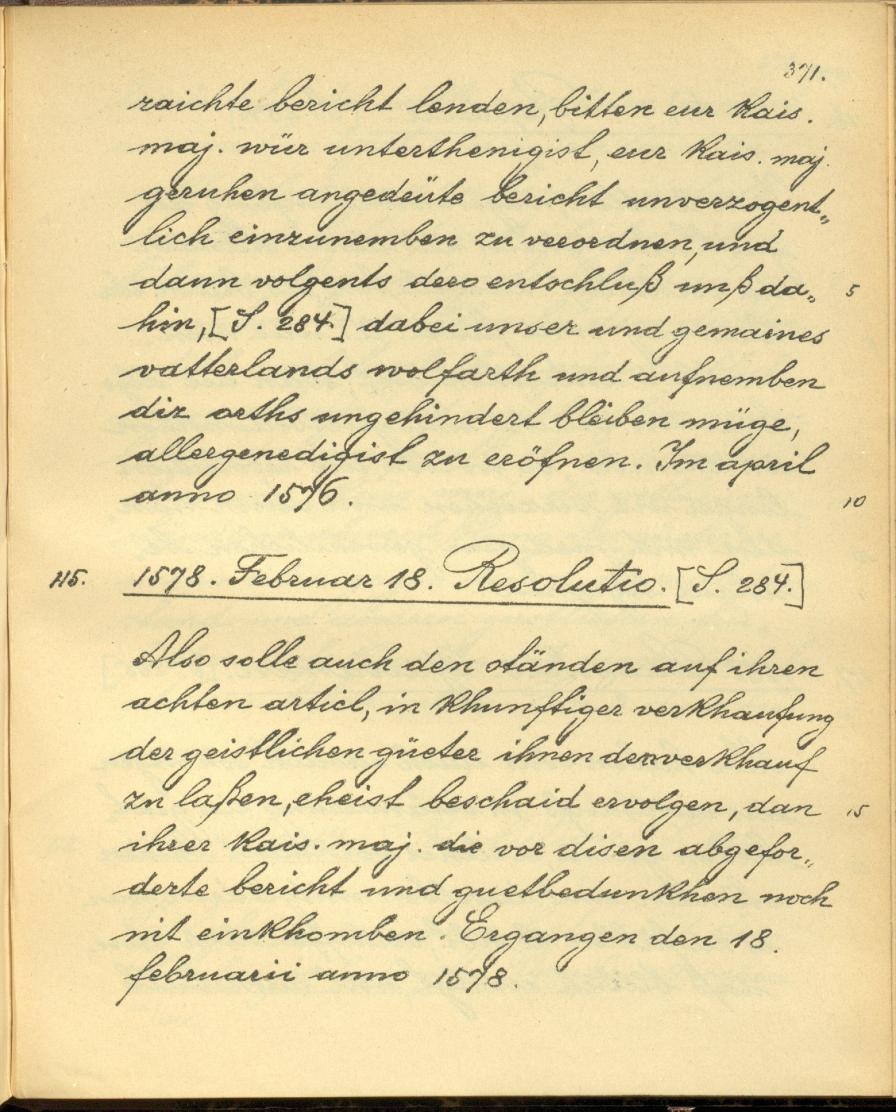 371.
raichte bericht lenden, bitten eur Kais.
maj. wür unterthenigist, eur Kais. maj.
geruhen angedeüte bericht unverzogent„
lich einzunemben zu verordnen, und
dann volgents dero entschluß unß da„ 5
hin, [S. 284.] dabei unser und gemaines
vatterlands wolfarth und aufnemben
diz orths ungehindert bleiben müge,
allergenedigist zu eröfnen. Im april
anno 1576. 10
115. 1578. Februar 18. Resolutio. [S. 284.]
Also solle auch den ständen auf ihren
achten articl, in khunftiger verkhaufung
der geistlichen güeter ihnen den verkhauf
zu laßen, eheist beschaid ervolgen, dan 15
ihrer Kais. maj. die vor disen abgefor„
derte bericht und guetbedunkhen noch
nit einkhomben. Ergangen den 18.
februarii anno 1578.